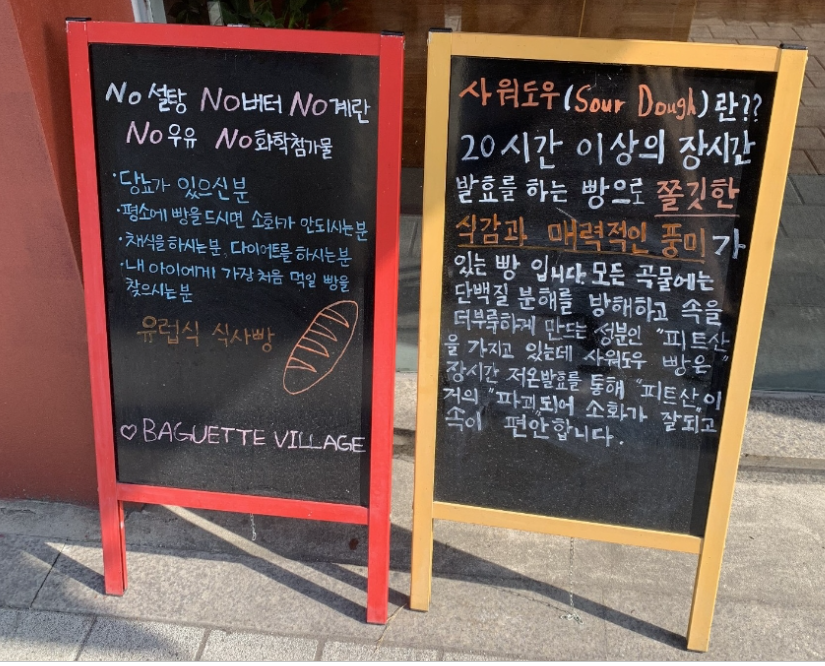 No 설탕 No버터 No계란
No우유 No화학첨가물
·당뇨가 있으신분
·평소에 빵을 드시면 소화가 안되시는분
·채식을 하시는분, 다이어트를 하시는분
·내 아이에게 가장 처음 먹일 빵을
찾으시는분
유럽식 식사빵
♡ BAGUETTE VILLAGE
사워도우(Sour Dough)란??
20시간 이상의 장시간
발효를 하는 빵으로 쫄깃한
식감과 매력적인 풍미가
있는 빵 입니다. 모든 곡물에는
단백질 분해를 방해하고 속을
더부룩하게 만드는 성분인 "피트산"
을 가지고 있는데 사워도우 빵은
장시간 저온발효를 통해 "피트산"이
거의 "파괴"되어 소화가 잘되고
속이 편안합니다.